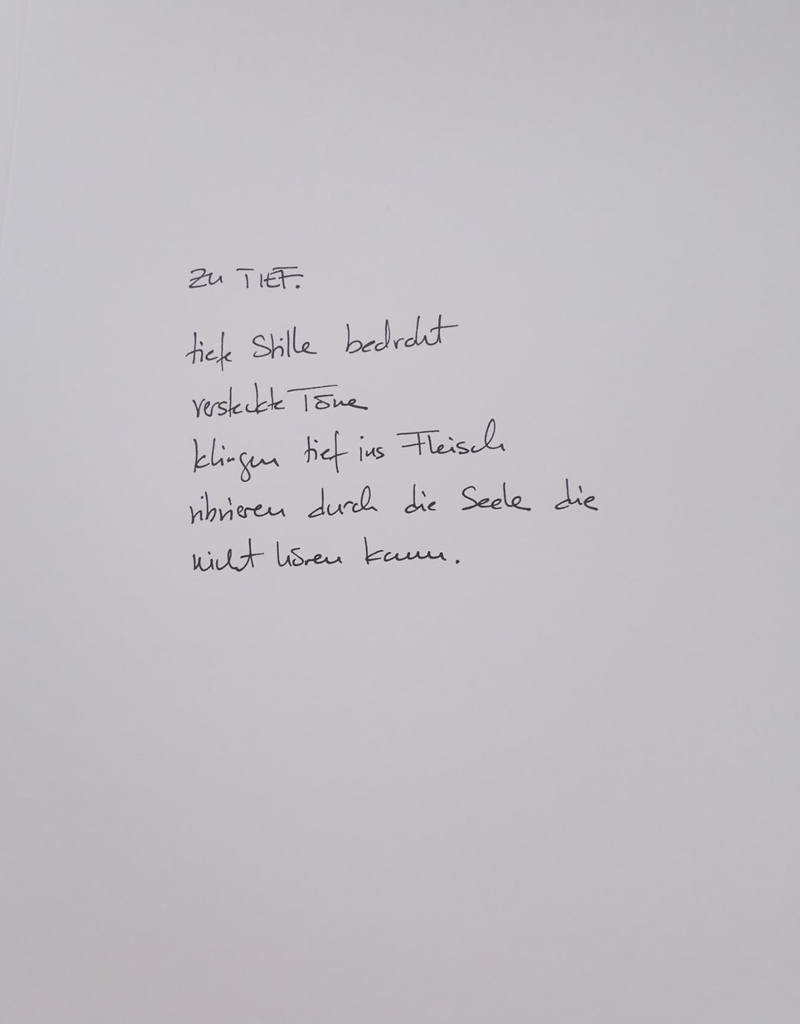 ZU TIEF.
tiefe Stille bedroht
versteckte Töne
klingen tief ins Fleisch
vibrieren durch die Seele die
nicht hören kann.